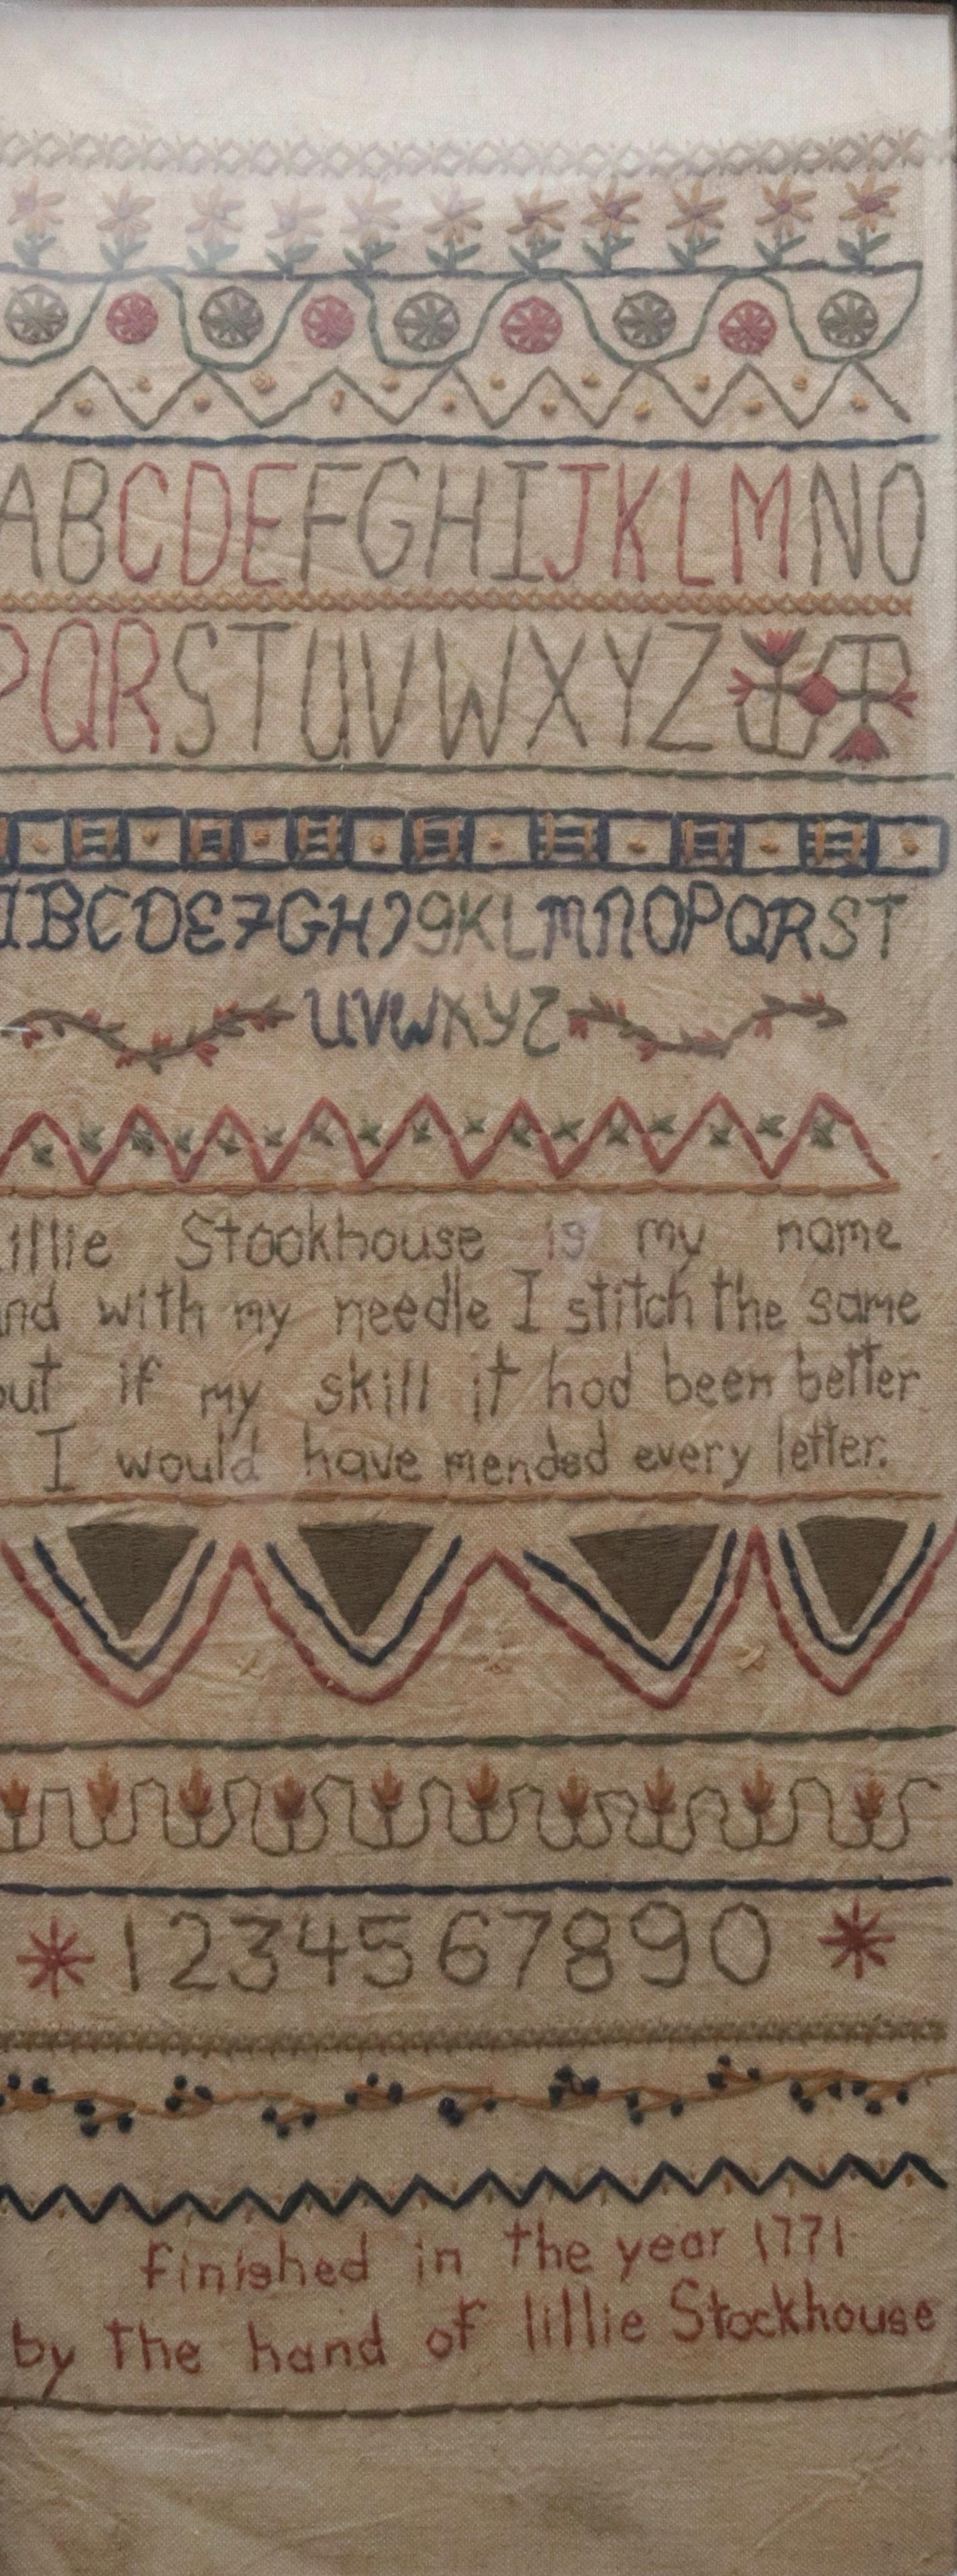 ABCDEFGHIJKLMNO
PQRSTUVWXYZ
BCDE7GHJ9KLMNOPQRST
UVWXYZ
illie Stookhouse is my name
nd with my needle I stitch the same
out if my skill it had been better
I would have mended every letter.
1234567890
finished in the year 1771
by the hand of lillie Stockhouse